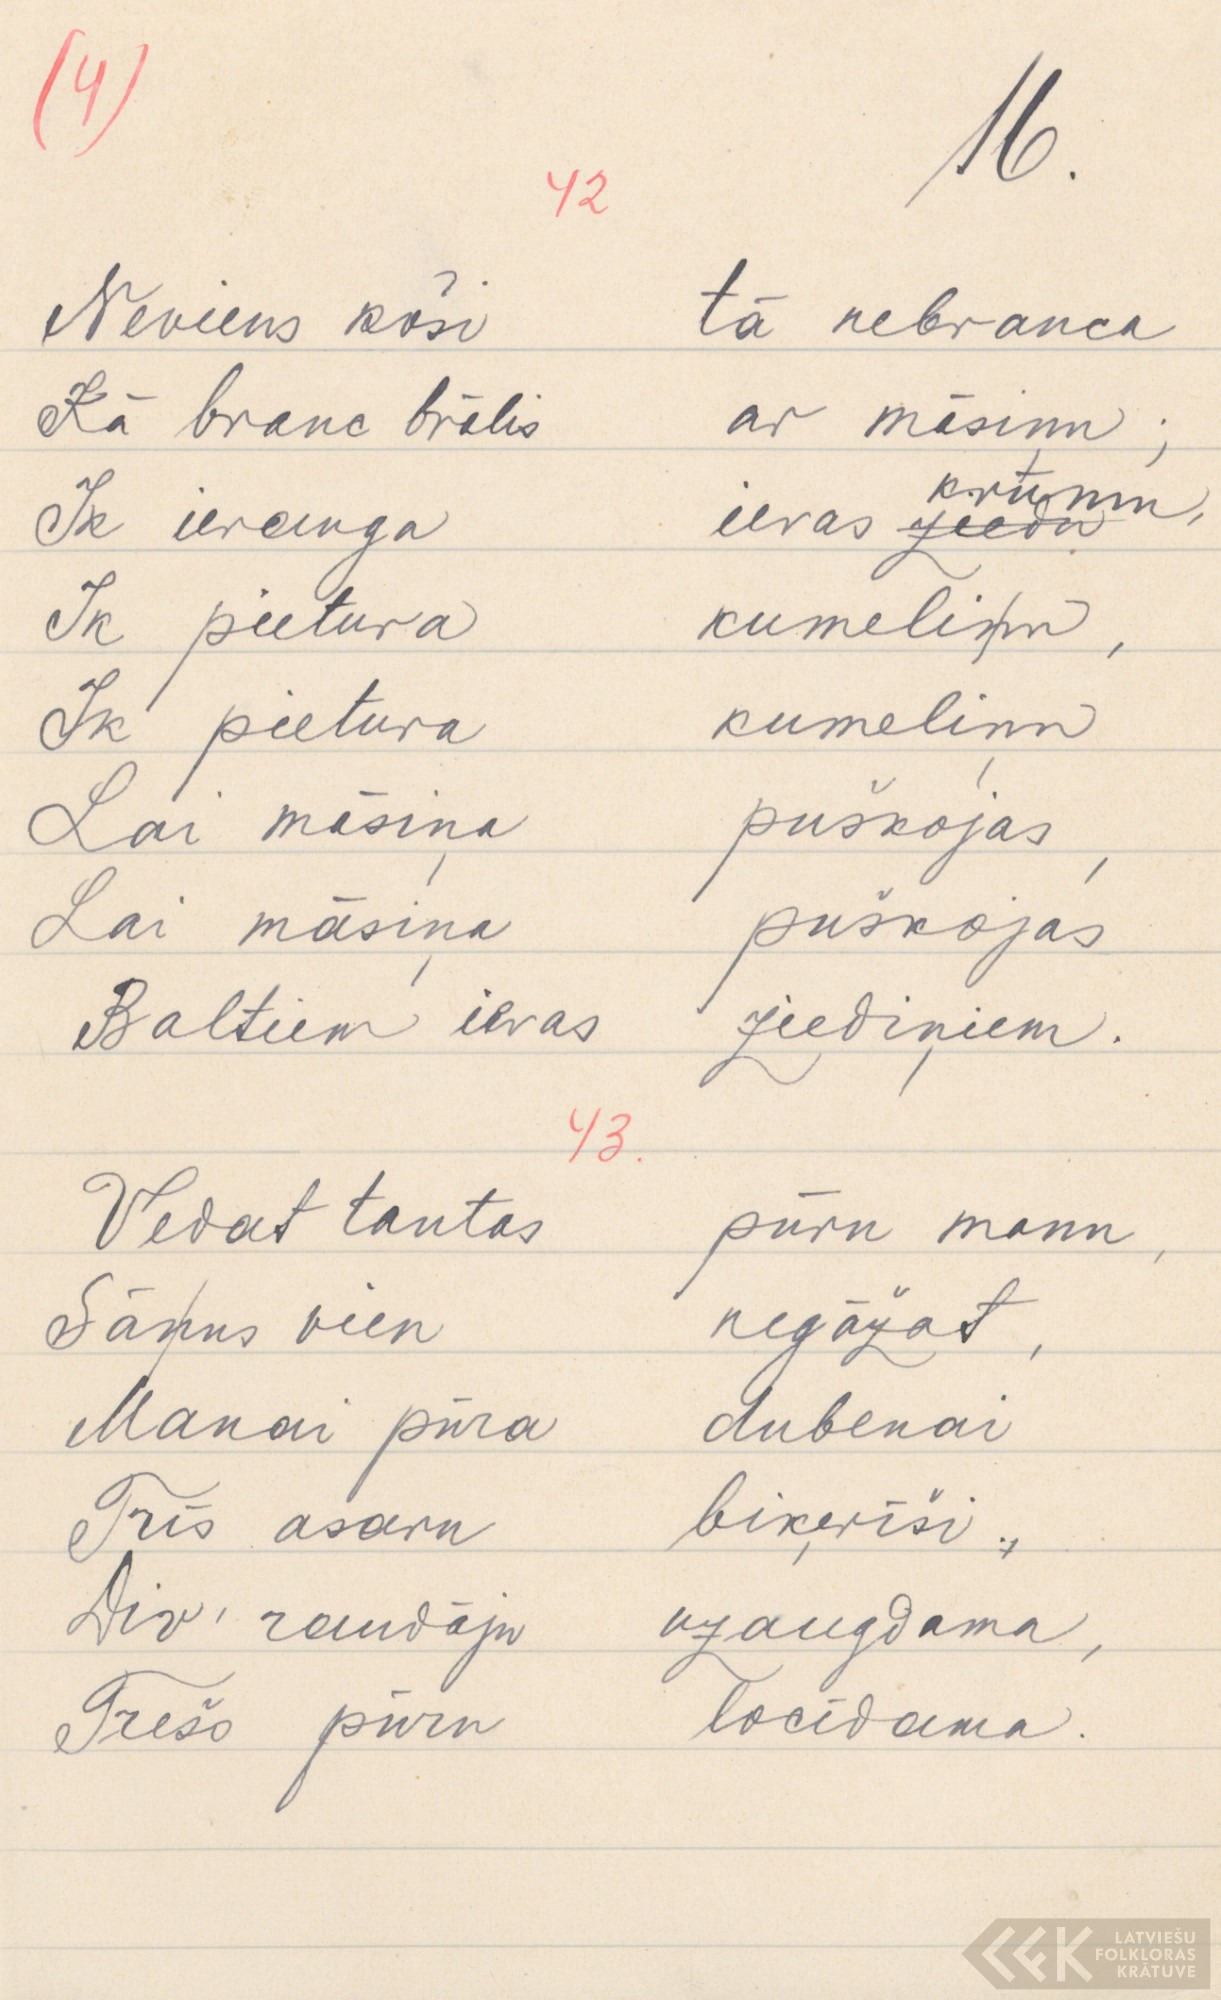 (4)
16.
42
Neviens kōši tā nebranca
Kā branc brālis ar māsiņu;
Ik ierauga ievas ziedu krūmu,
Ik pietura kumeliņu,
Ik pietura kumeliņu
Lai māsiņa puškojas,
Lai māsiņa puškojas
Baltiem ievas ziediņiem.
43.
Vedat tautas pūru manu,
Sāņus vien negāžat,
Manai pūra dubenai
Trīs asaru biķerīši.,
Div' raudāju uzaugdama,
Trešo pūru locīdama.
LATVIEŠU
FOLKLORAS
KRĀTUVE